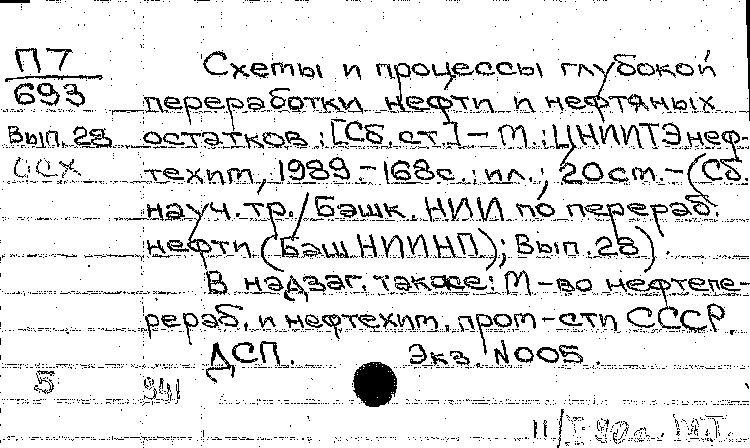 П7
693
Вып. 28
ОСХ
Схемы и процессы глубокой
переработки нефти и нефтяных
остатков : [Сб. ст.] – М. : ЦНИИТЭнеф-
техим, 1989. – 168с. : ил. ; 20см. – (Сб.
науч. тр. / Башк. НИИ по перераб.
нефти (БашНИИНП) ; Вып. 28).
В надзаг. также: М-во нефтепе-
рераб. и нефтехим. пром-сти СССР.
ДСП. Экз. N005.
5 941